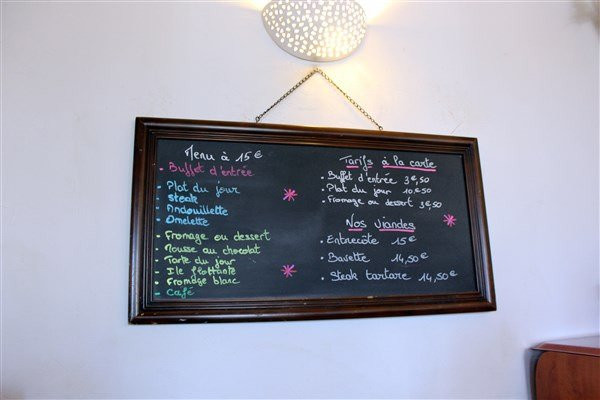 Menu à 15€
- Buffet d'entrée
- Plat du jour
- Steak
- Andouillette
- Omelette
- Fromage ou dessert
- Mousse au chocolat
- Tarte du jour
- Ile flottante
- Fromage blanc
- Café
Tarifs à la carte
• Buffet d'entrée 3€,50
• Plat du jour 10€,50
• Fromage ou dessert 3€50
Nos viandes
• Entrecôte 15€
• Bavette 14,50€
• Steak tartare 14,50€